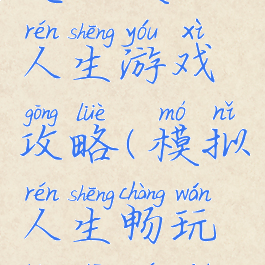 rén shēng yóu xì
人生游戏
gōng lüè mó nǐ
攻略(模拟
rén shēng chàng wán
人生畅玩